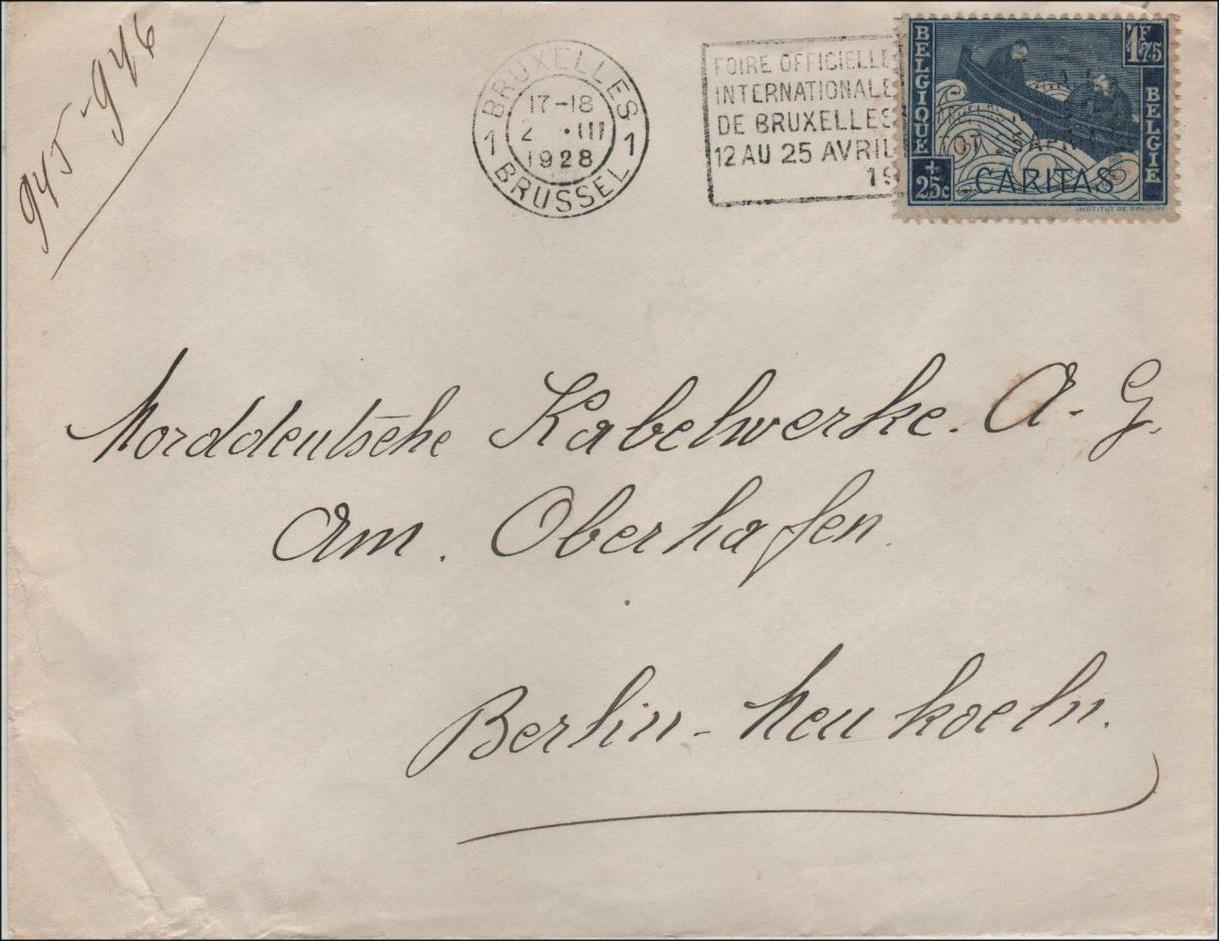 945-946
BRUXELLES
17-18
2 .III
1928
1 1
BRUSSEL
FOIRE OFFICIELLE
INTERNATIONALE
DE BRUXELLES
12 AU 25 AVRIL
19
BELGIQUE
1F75
BELGIE
TOT
+25c
CARITAS
Norddeutsche Kabelwerke. A. G.
Am. Oberhafen.
Berlin-Neukoeln.